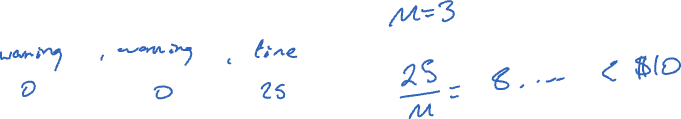 M=3
warning , warning , fine
0 0 25
25/M = 8.... < $10